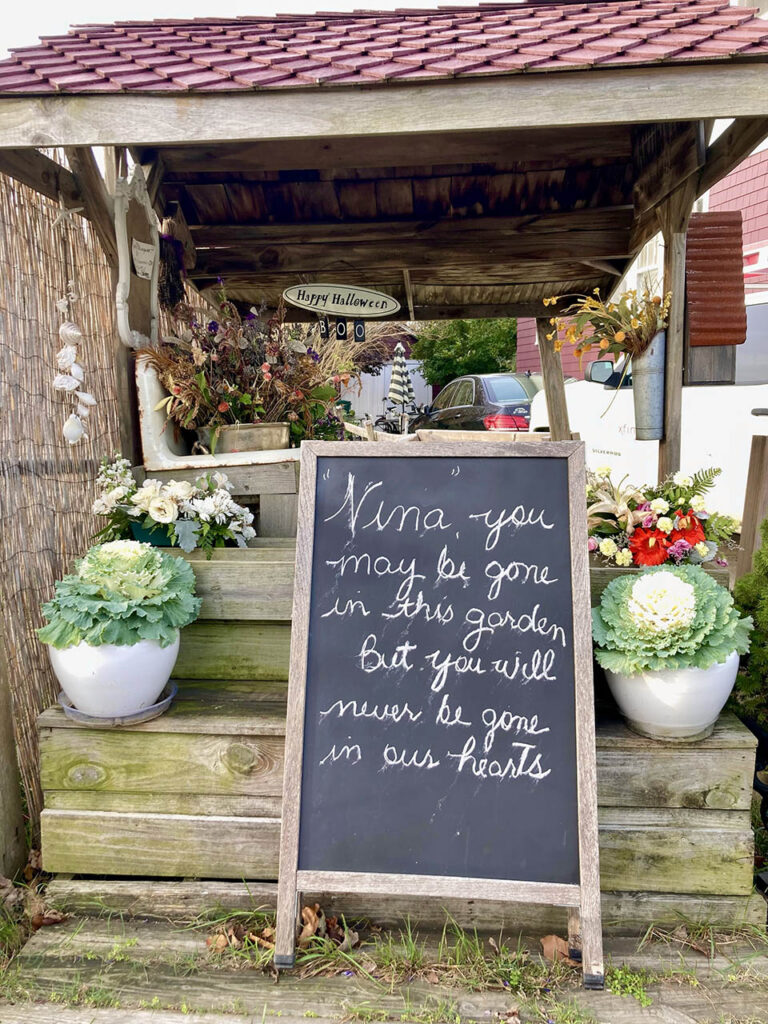 Happy Halloween
BOO
"Nina" you
may be gone
in this garden
But you will
never be gone
in our hearts